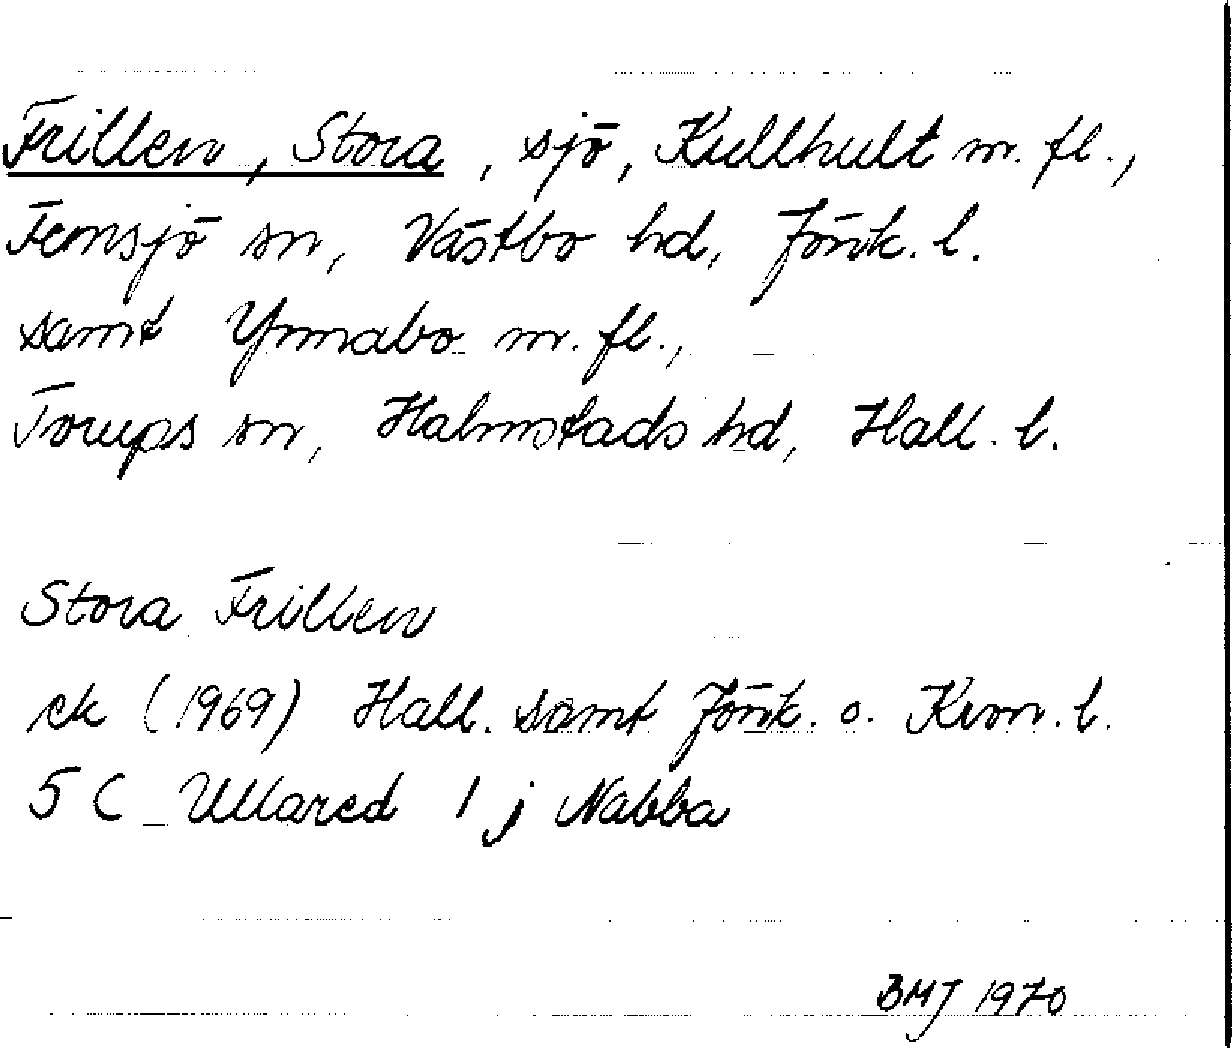 Frillen, Stora, sjö, Kullhult m. fl.,
Femsjö sn, Västbo hd, Jönk. l.
samt Ynnabo m. fl.,
Torups sn, Halmstads hd, Hall. l.
Stora Frillen
ek (1969) Hall. samt Jönk. o. Kron. l.
5 C Ullared 1 j Nabba
BMJ 1970